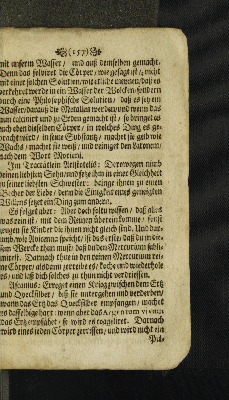 (157)
mit unserm Wasser / und auß demselben gemacht.
Denn das solviret die Cörper / wie gesagt ist / nicht
mit einer solchen Solution / wie etliche meynen / daß es
verkehret werde in ein Wasser der Wolcken / sondern
durch eine Philosophische Solution / daß es sey ein
Wasser / daraus die Metallen worden / und wann das
nun calciniret und zu Erden gemacht ist / so bringet es
auch eben dieselben Cörper / in welches Ding es ge-
bracht wird / in seine Substantz / machet sie gelb wie
Wachs / machet sie weiß / und reiniget den Latonem /
nach dem Wort Morieni.
Im Tractätlein Aristotelis: Derowegen nimb
deinen liebsten Sohn / und setze ihn in einer Gleichheit
zu seiner liebsten Schwester: bringe ihnen zu einen
Becher der Liebe / denn die Einigkeit eines geneigten
Willens setzet ein Ding zum andern.
Es folget aber: Aber doch solt du wissen / daß alles
was rein ist / mit dem Reinen überein komme / sonst
zeugen sie Kinder die ihnen nicht gleich sind. Und dar-
umb / wie Avicenna spricht / ist das erste / daß du in die-
sem Wercke thun must / daß du den Mercurium subli-
mirest. Darnach thue in den reinen Mercurium rei-
ne Cörper / alsdann zerreibe es / koche und wiederhole
es / und laß dich solches zu thun nicht verdriessen.
Ascanius: Erreget einen Krieg zwischen dem Ertz
und Quecksilber / biß sie untergehen und verderben /
wann das Ertz das Quecksilber empfangen / machet
es dasselbige hart: wenn aber das Argentum vivum
das Ertz empfähet / so wird es coaguliret. Darnach
wird eines jeden Cörper zerrissen / und wird nicht ein
Pul-